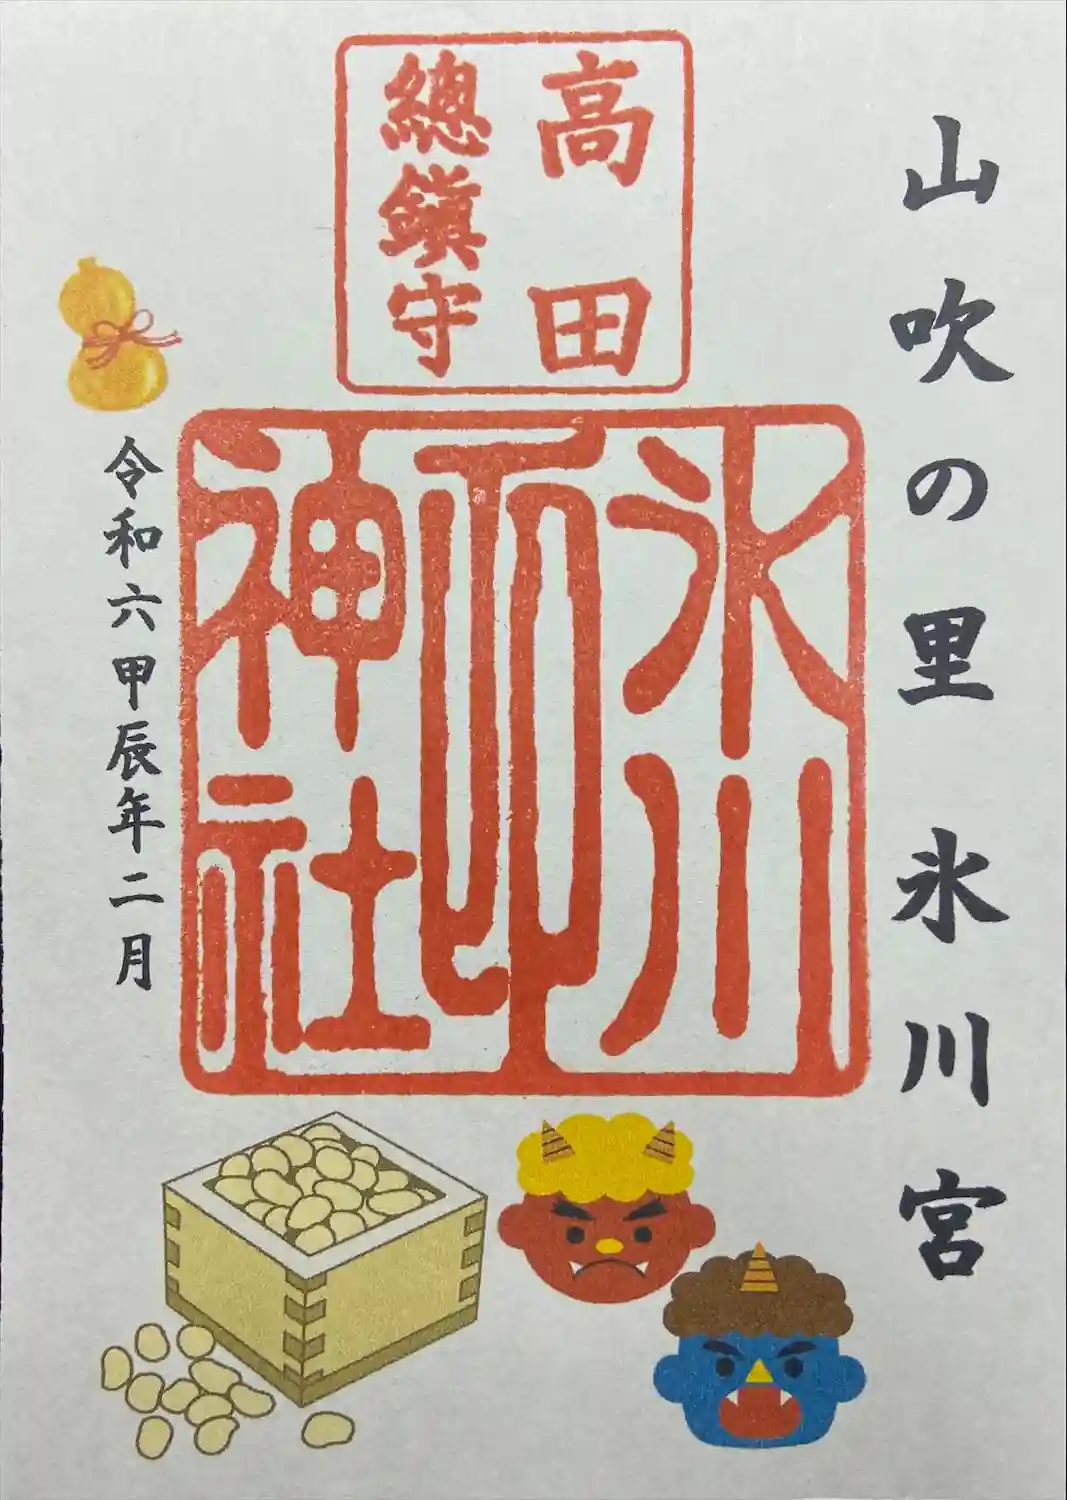 山吹の里 氷川宮
高田
總鎮守
氷川
神社
令和六甲辰年二月